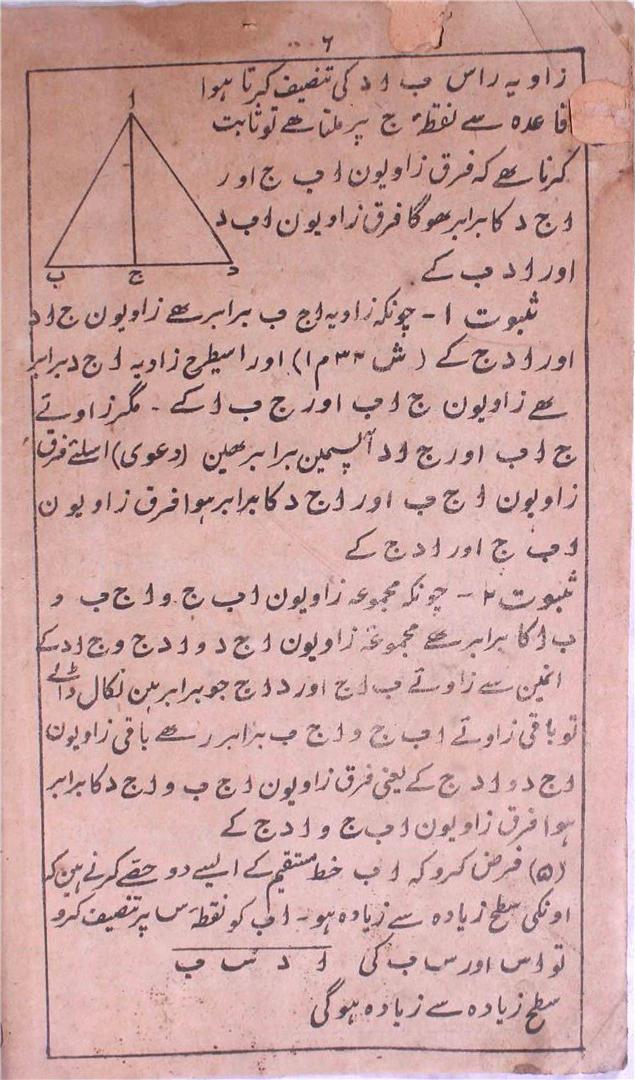 ۶
زاویہ راس ب ا د کی تنصیف کرتا ہوا
قاعدہ سے نقطہ ج پر ملتا ھے تو ثابت
کرنا ھے کہ فرق زاویون ا ب ج اور
ا ج د کا برابر ھوگا فرق زاویون ا ب د
اور ا د ب کے
ا
ب ج د
ثبوت ۱ - چونکہ زاویہ ا ج ب برابر ھے زاویون ج ا د
اور ا د ج کے (ش ۳۲ م ۱) اور اسیطرح زاویہ ا ج د برابر
ھے زاویون ج ا ب اور ج ب ا کے - مگر زاوئے
ج ا ب اور ج ا د آپسمین برابر ھین (دعوی) اسلئے فرق
زاویون ا ج ب اور ا ج د کا برابر ہوا فرق زاویون
ا ب ج اور ا د ج کے
ثبوت ۲ - چونکہ مجموعہ زاویون ا ب ج و ا ج ب و
ب ا کا برابر ھے مجموعہ زاویون ا ج د و ا د ج و ج ا د کے
انمین سے زاوئے ب ا ج اور د ا ج جو برابر ہین نکال ڈالے
تو باقی زاوئے ا ب ج و ا ج ب برابر رھے باقی زاویون
ا ج د و ا د ج کے یعنی فرق زاویون ا ج ب و ا ج د کا برابر
ہوا فرق زاویون ا ب ج و ا د ج کے
(۵) فرض کرو کہ ا ب خط مستقیم کے ایسے دو حصے کرنے ہین کہ
اونکی سطح زیادہ سے زیادہ ہو - ا ب کو نقطہ س پر تنصیف کرو
تو ا س اور س ب کی ا د س ب
سطح زیادہ سے زیادہ ہوگی